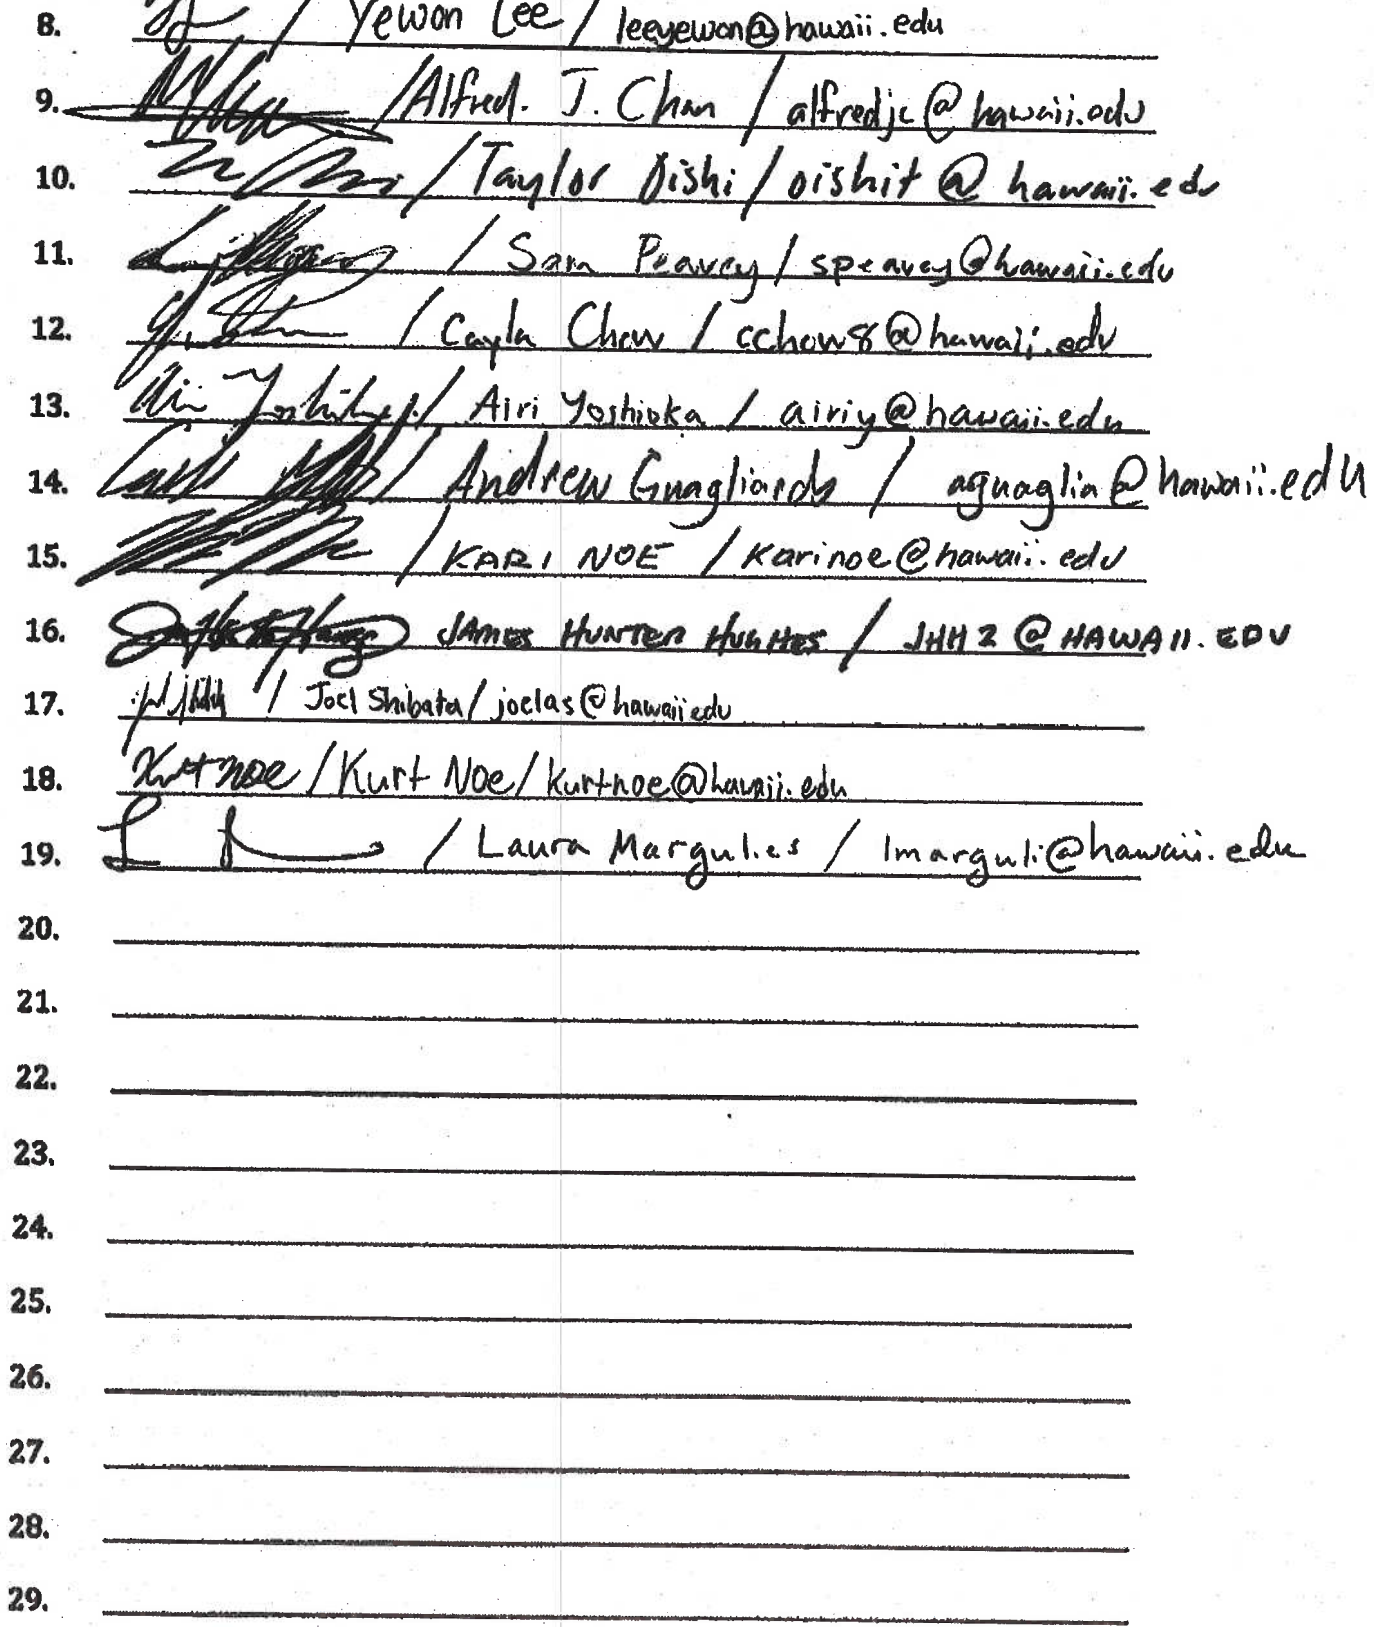 8. / Yewon Lee / leeyewon@hawaii.edu
9. / Alfred. J. Chan / alfredjc@hawaii.edu
10. / Taylor Oishi / oishit@hawaii.edu
11. / Sam Peavey / speavey@hawaii.edu
12. / Cayla Chow / cchow8@hawaii.edu
13. Airi Yoshioka / Airi Yoshioka / airiy@hawaii.edu
14. / Andrew Guagliardo / aguaglia@hawaii.edu
15. / KARI NOE / karinoe@hawaii.edu
16. JAMES HUNTER HUGHES / JHH2@HAWAII.EDU
17. / Joel Shibata / joelas@hawaii.edu
18. Kurt noe / Kurt Noe / kurtnoe@hawaii.edu
19. / Laura Margulies / lmarguli@hawaii.edu
20.
21.
22.
23.
24.
25.
26.
27.
28.
29.